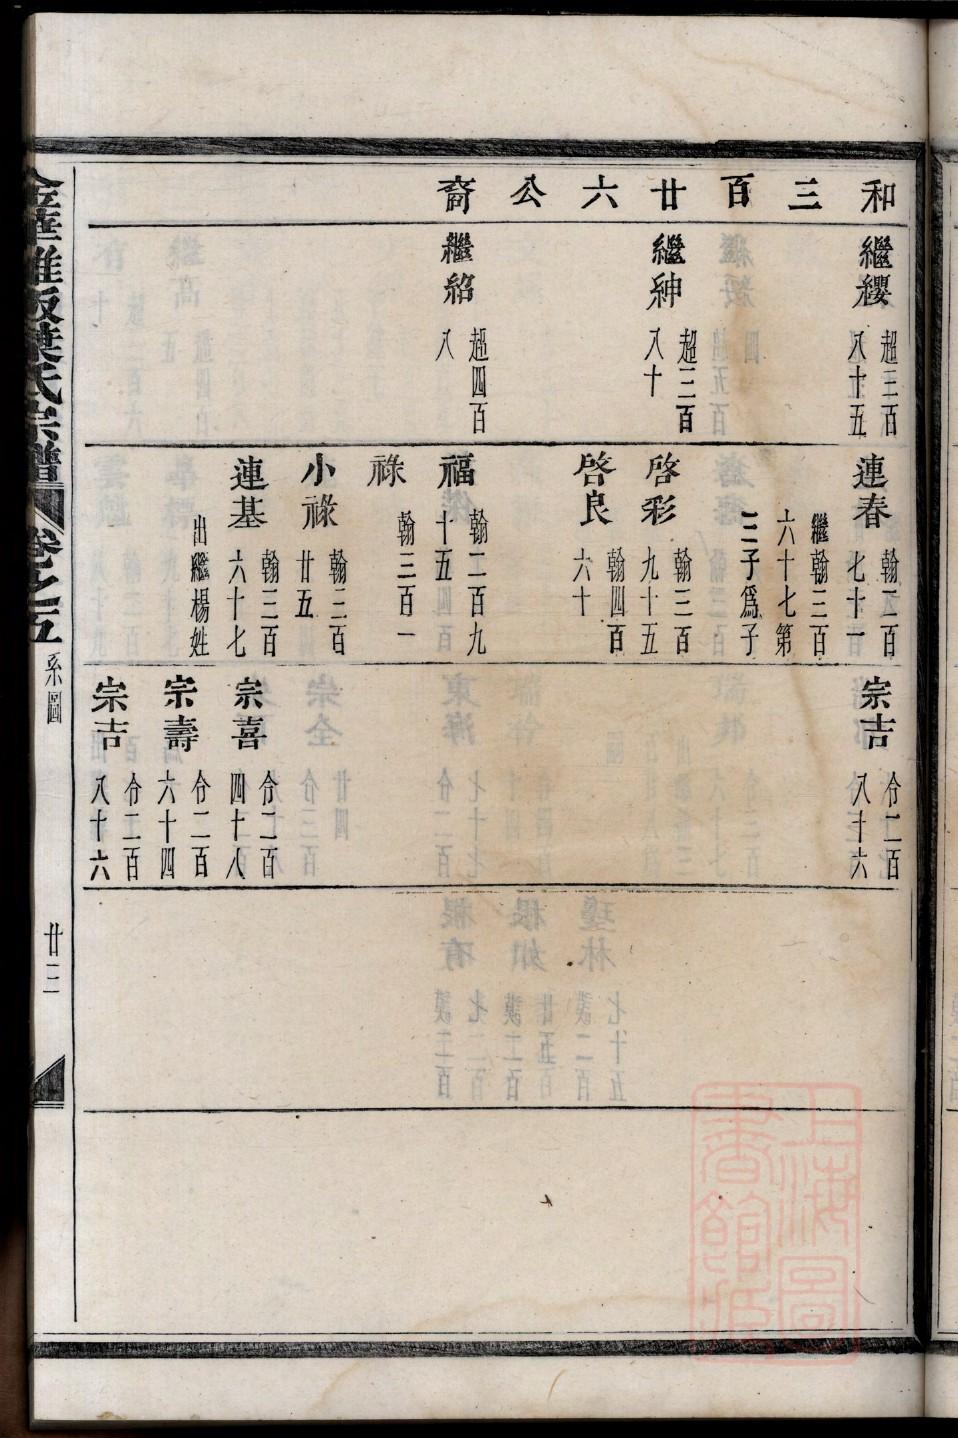 和三百廿六公裔
繼纓 超三百八十五
繼紳 超三百八十
繼紹 超四百八
連春 翰二百七十一
繼翰三百六十七第二子爲子
啓彩 翰三百九十五
啓良 翰四百六十
福 翰二百九十五
祿 翰三百一
小祿 翰三百廿五
連基 翰三百六十七
出繼楊姓
宗吉 仱二百八十六
宗喜 仱二百四十八
宗壽 仱二百六十四
宗吉 仱二百八十六
葉氏宗譜
卷之五
系圖
廿三
上海圖書館藏